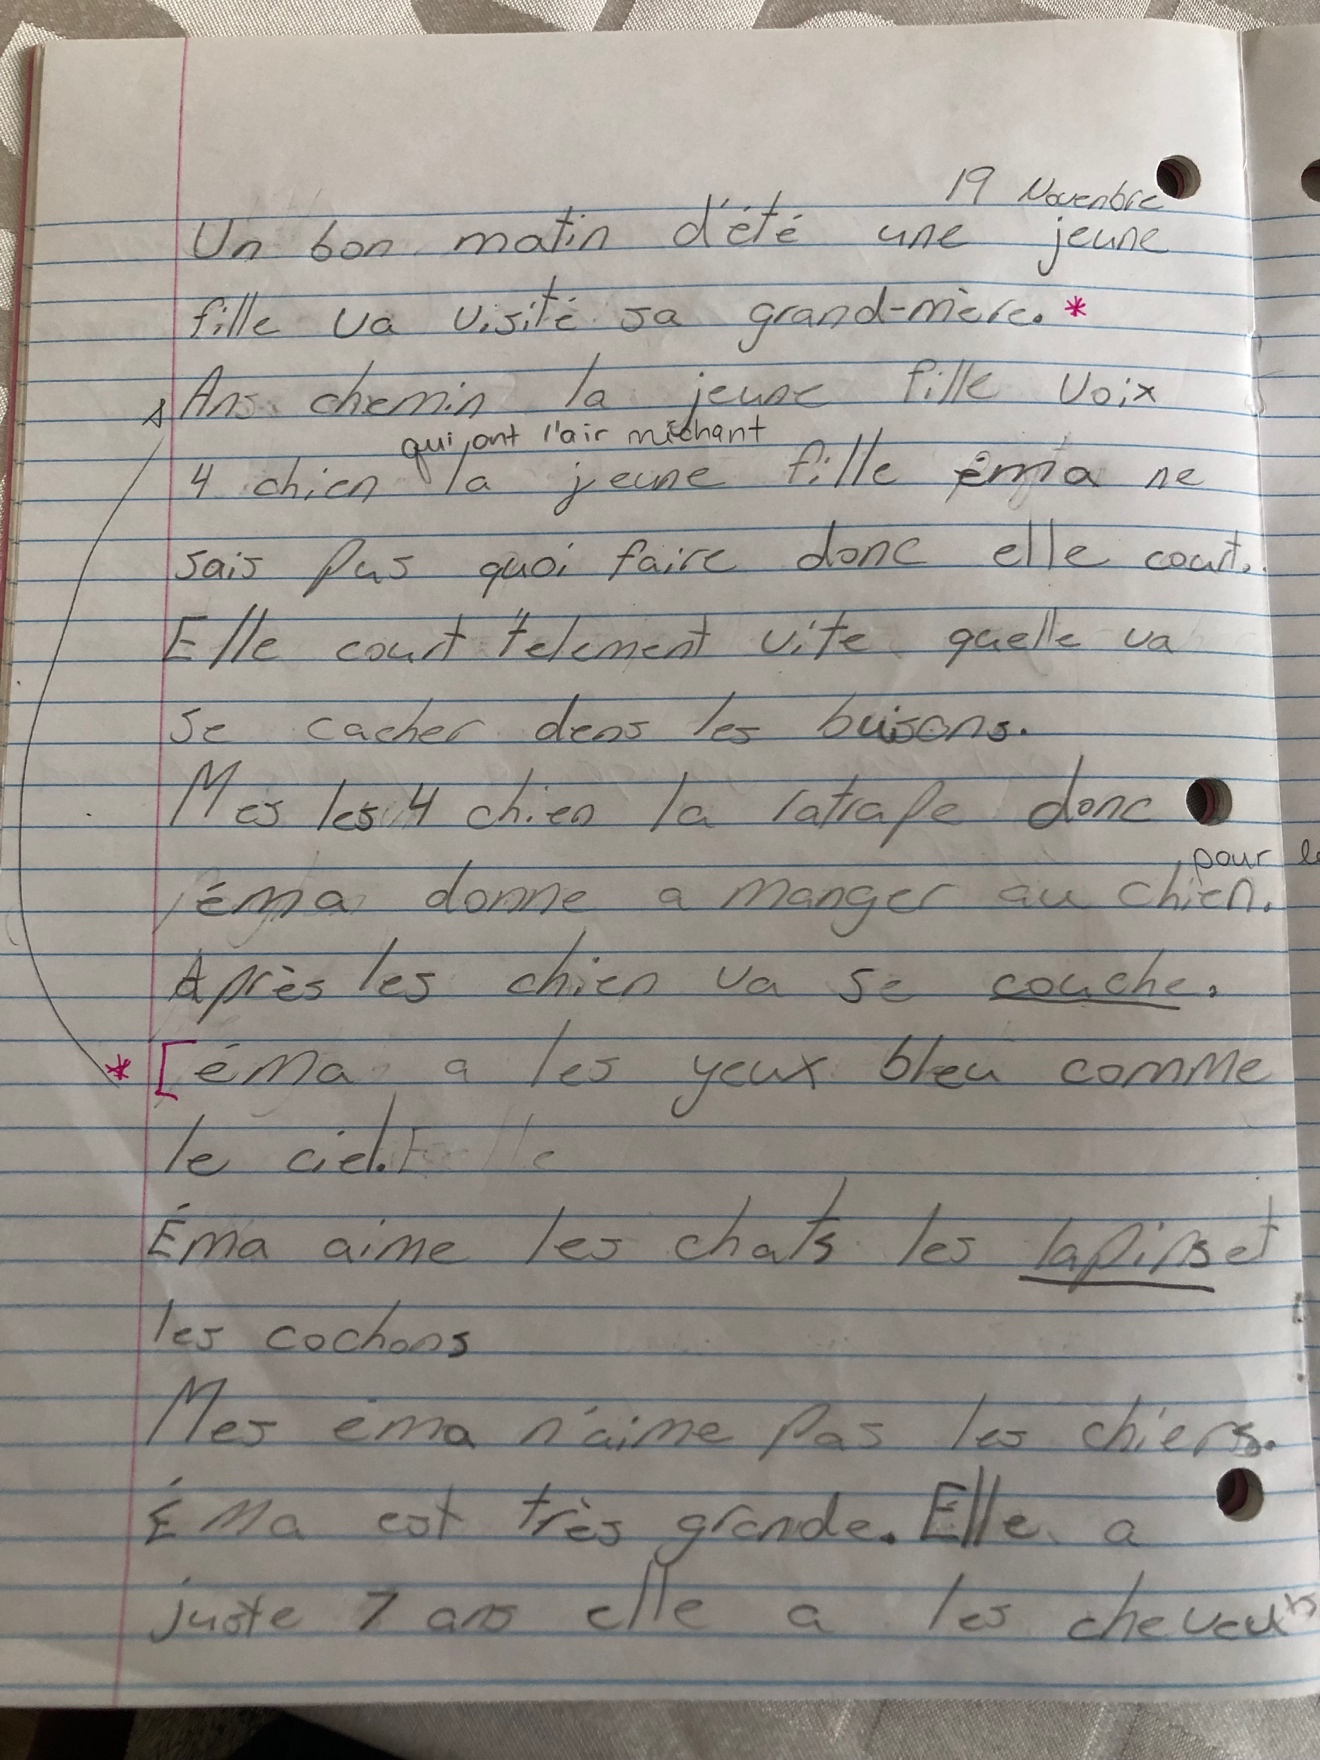 19 Novenbre
Un bon matin d'été une jeune
fille va visité sa grand-mère. *
Ans chemin la jeune fille voix
qui ont l'air méchant
4 chien la jeune fille éma ne
sais pas quoi faire donc elle court.
Elle court telement vite quelle va
se cacher dens les buisons.
Mes les 4 chien la ratrape donc
pour
éma donne a manger au chien.
Après les chien va se couche.
* [ éma a les yeux bleu comme
le ciel. Elle
Éma aime les chats les lapins et
les cochons
Mes éma n'aime pas les chiens.
Éma est très grande. Elle a
juste 7 ans elle a les cheveux